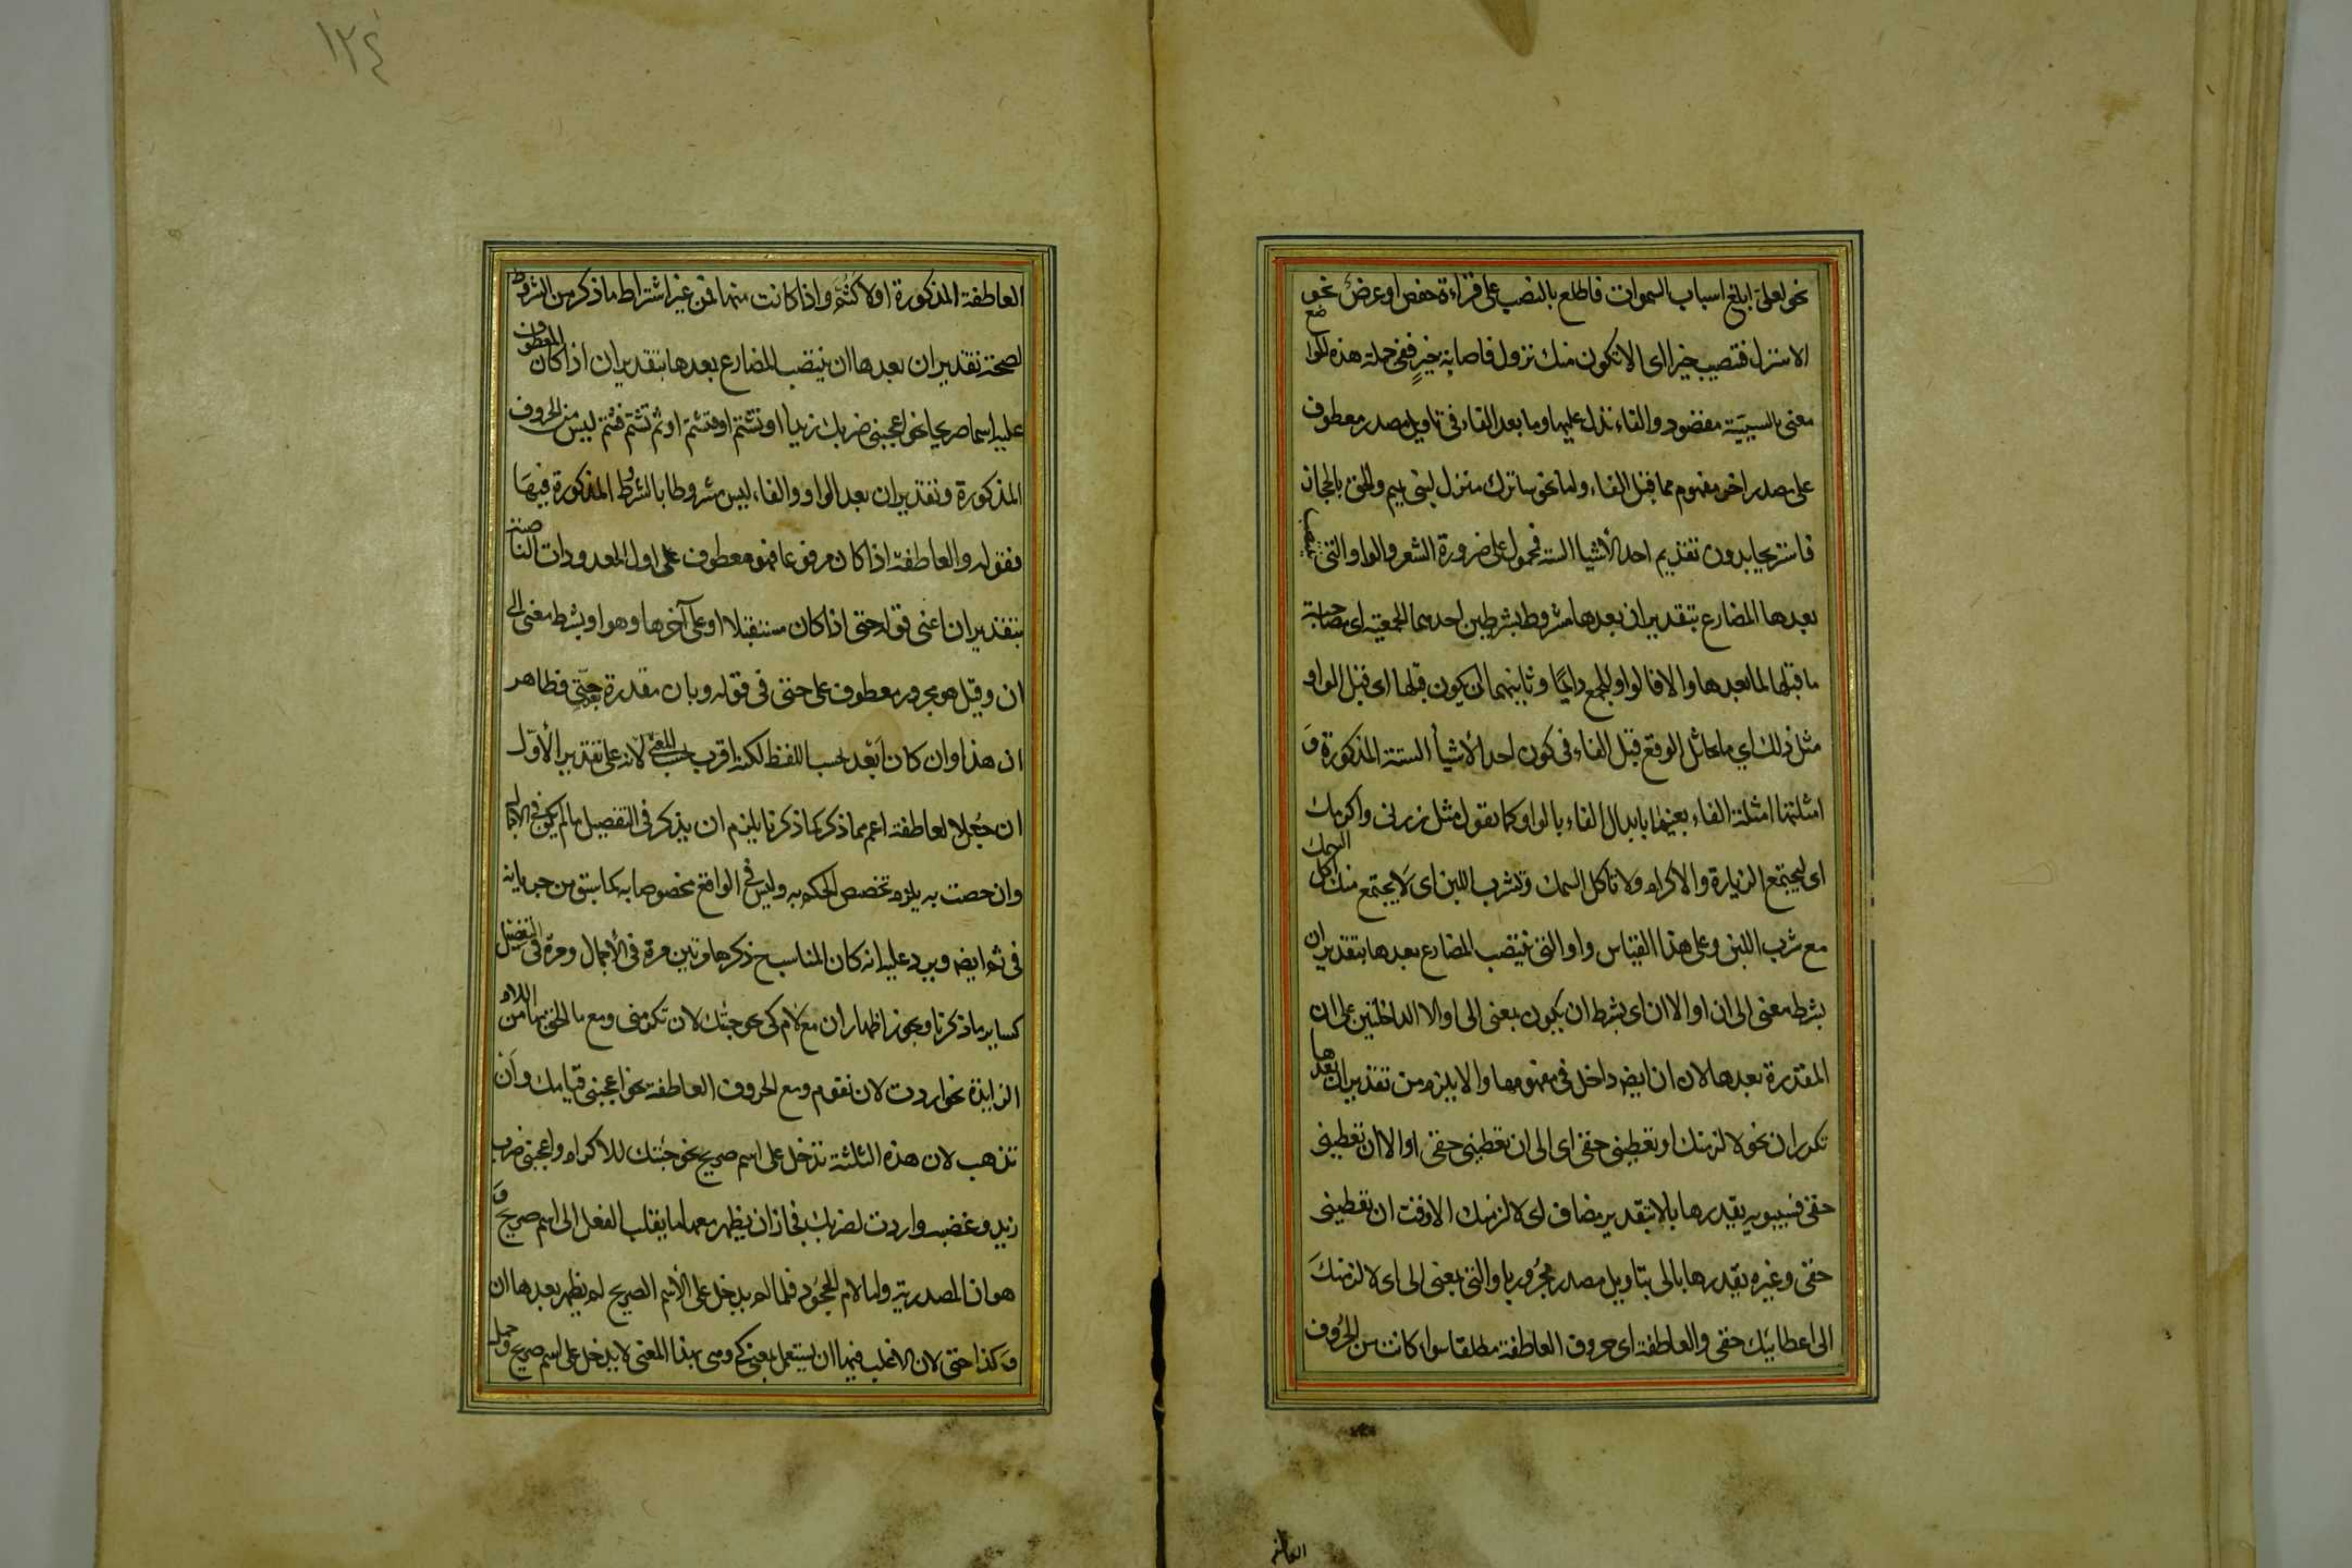 نحو لعلى ابلغ اسباب السموات فاطلع بالنصب على قراءة حفص او عرض نحو
الا تنزل فتصيب خيرا اى الا تكون منك نزول فاصابة خير ففى جملة هذه المواضع
معنى السببية مقصود والفاء تدل عليها وما بعد الفاء فى تاويل مصدر معطوف
على مصدر اخر مفهوم مما قبل الفاء واما نحو ساترك منزلى لبنى تميم والحق بالحجاز
فاستريحا بدون تقديم احد الأشياء الستة فمحمول على ضرورة الشعر والواو التى ينتصب
بعدها المضارع بتقدير ان بعدها مشروط بشرطين احدهما الجمعية اى مصاحبة
ما قبلها لما بعدها والا فالواو للجمع دائما وثانيهما ان يكون قبلها اى قبل الواو
مثل ذلك اي ما يماثل الوقع قبل الفاء فى كون احد الأشيأ الستة المذكورة وَ
امثلتها امثلة الفاء بعينها بابدال الفاء بالواو كما تقول مثل زرنى واكرمك
اى ليجتمع الزيارة والاكرام ولا تاكل السمك وتشرب اللبن اى لا يجتمع منك اكل السمك
مع شرب اللبن وعلى هذا القياس واو التى ينتصب المضارع بعدها بتقدير ان
بشرط معنى الى ان او الا ان اى بشرط ان يكون بمعنى الى او الا الداخلتين على ان
المقدرة بعدها لان ان ايضا داخل فى مفهومها والا يلزم من تقدير ان بعدها
تكرر ان نحو لالزمنك او تعطينى حقى اى الى ان تعطينى حقى او الا ان تعطينى
حقى فسيبويه يقدرها بالا بتقدير مضاف اى لالزمنك الا وقت ان تعطينى
حقى وغيره يقدرها بالى بتاويل مصدر مجرور باو التى بمعنى الى اى لالزمنكَ
الى اعطائك حقى والعاطفة اى حروف العاطفة مطلقا سواء كانت من الحُروف
العاطفة
١٢٤
العاطفة المذكورة اولا كثُم واذا كانت منها فمن غير اشتراط ما ذكر من الشروط
لصحة تقدير ان بعدها ان ينتصب المضارع بعدها بتقدير ان اذا كان المعطوف
عليه اسما صريحا نحو اعجبنى ضربك زيدا او تشتم او فتشتم او ثم تشتم فثم ليس من الحروف
المذكورة وتقدير ان بعد الواو والفاء ليس مشروطا بالشروط المذكورة فيهَا
فقوله والعاطفة اذا كان مرفوعا فهو معطوف على اول المعدودات الناصبة
بتقدير ان اعنى قوله حتى اذا كان مستقبلا او على آخرها وهو او بشرط معنى الى
ان وقيل هو مجرور معطوف على حتى فى قوله وبان مقدرة بعد حتى فظاهر
ان هذا وان كان ابعد بحسب اللفظ لكنه اقرب بحسب المعنى لأنه على تقدير الأوّل
ان جُعل العاطفة اعم مما ذكر كما ذكرنا يلزم ان يذكر فى التفصيل ما لم يكن فى الاجمال
وان خصت به يلزم تخصص الحكم به وليس فى الواقع مخصوصا به كما سبق من جريانه
فى ثم ايضا ويرد عليه انه كان المناسب ح ذكرها مرتين مرة فى الأجمال ومرة فى التفصيل
كساير ما ذكرنا ويجوز اظهار ان مع لام كى نحو جئتك لان تكرمنى ومع ما الحق بها من اللام
الزايدة نحو اردت لان تقوم ومع الحروف العاطفة نحو اعجبنى قيامك وان
تذهب لان هذه الثلثة تدخل على اسم صريح نحو جئتك للاكرام واعجبنى ضرب
زيد وغضبه واردت لضربك فجاز ان يظهر معها ما يقلب الفعل الى اسم صريح وَ
هو ان المصدرية واما لام الجحود فلما لم يدخل على الأسم الصريح لم يظهر بعدها ان
وكذا حتى لان الاغلب فيها ان يستعمل بمعنى كى وهى بهذا المعنى لا يدخل على اسم صريح وحمل